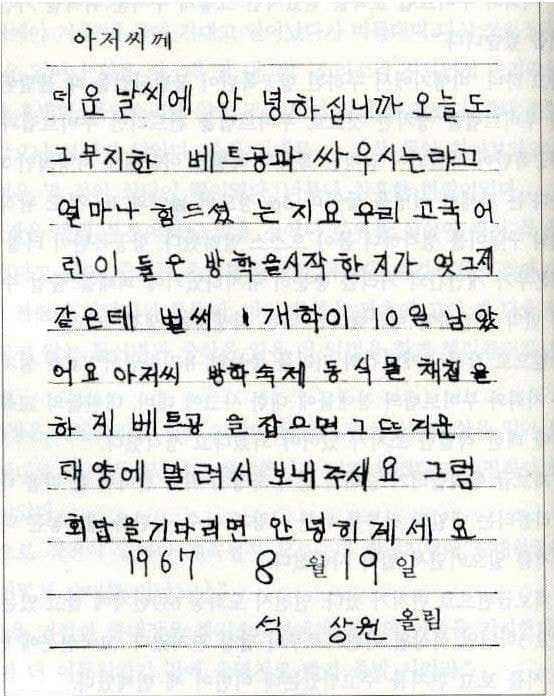 아저씨께
더운 날씨에 안녕하십니까 오늘도
그무지한 베트공과 싸우시느라고
얼마나 힘드셨는지요 우리 고국 어
린이들은 방학을시작한지가 엊그제
같은데 벌써 개학이 10일 남았
어요 아저씨 방학숙제 동식물 채집을
하게 베트공을 잡으면 그 뜨거운
태양에 말려서 보내주세요 그럼
회답을기다리면 안녕히계세요
1967 8월 19일
석 상원 올림